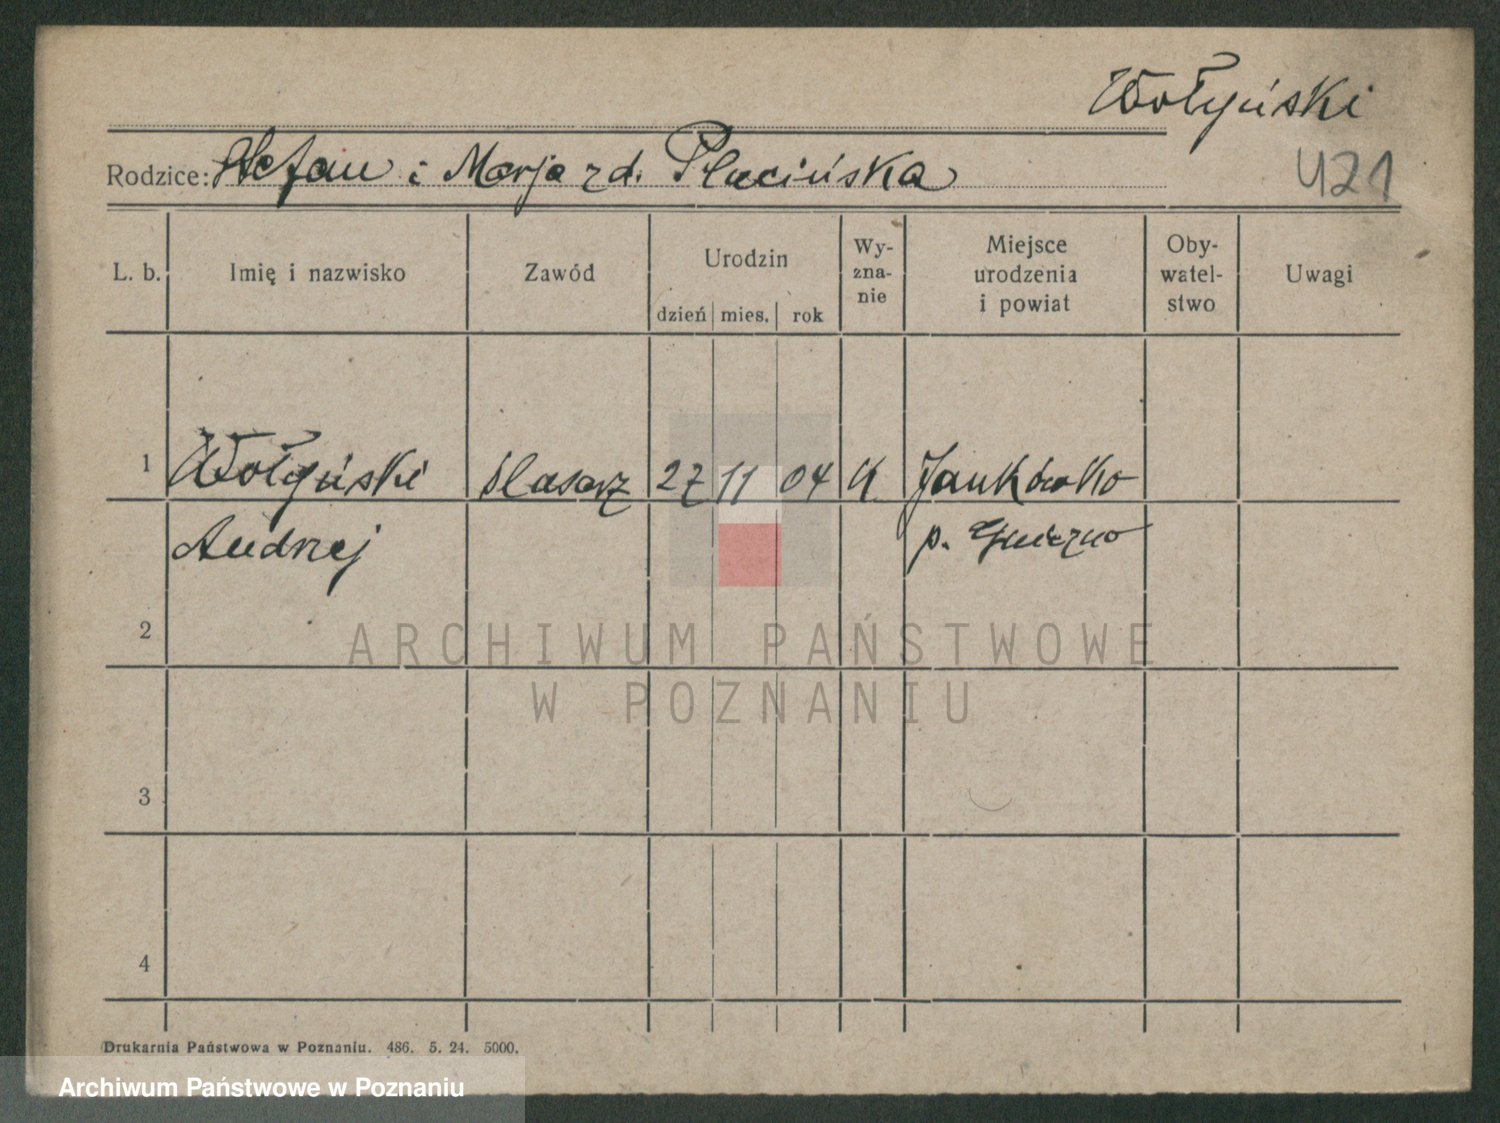 Wołyński
Rodzice: Stefan i Marja z d. Plucińska
421
L. b. Imię i nazwisko Zawód Urodzin Wy-zna-nie Miejsce urodzenia i powiat Oby-watel-stwo Uwagi
dzień mies. rok
1 Wołyński ślusarz 27 11 04 K Jankówko
Andrzej p. Gniezno
2
ARCHIWUM PAŃSTWOWE
W POZNANIU
3
4
Drukarnia Państwowa w Poznaniu. 486. 5. 24. 5000.
Archiwum Państwowe w Poznaniu